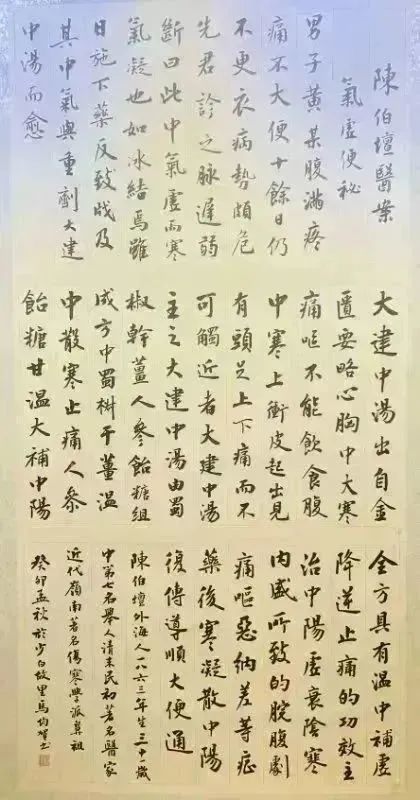 陳伯壇醫案
氣虛便秘
男子黃某腹滿疼
痛不大便十餘日仍
不更衣病勢頗危
先君診之脉遲弱
斷曰此中氣虛而寒
氣凝也如冰結焉雖
日施下藥反致戕及
其中氣與重劑大建
中湯而愈
大建中湯出自金
匱要略心胸中大寒
痛嘔不能飲食腹
中寒上衝皮起出見
有頭足上下痛而不
可觸近者大建中湯
主之大建中湯由蜀
椒幹薑人參飴糖組
成方中蜀椒干薑温
中散寒止痛人參
飴糖甘温大補中陽
全方具有温中補虛
降逆止痛的功效主
治中陽虛衰陰寒
内盛所致的脘腹劇
痛嘔惡納差等症
藥後寒凝散中陽
復傳導順大便通
陳伯壇外海人一八六三年生三十一歲
中第七名舉人清末民初著名醫家
近代嶺南著名傷寒學派鼻祖
癸卯孟秋於少白故里馬均书